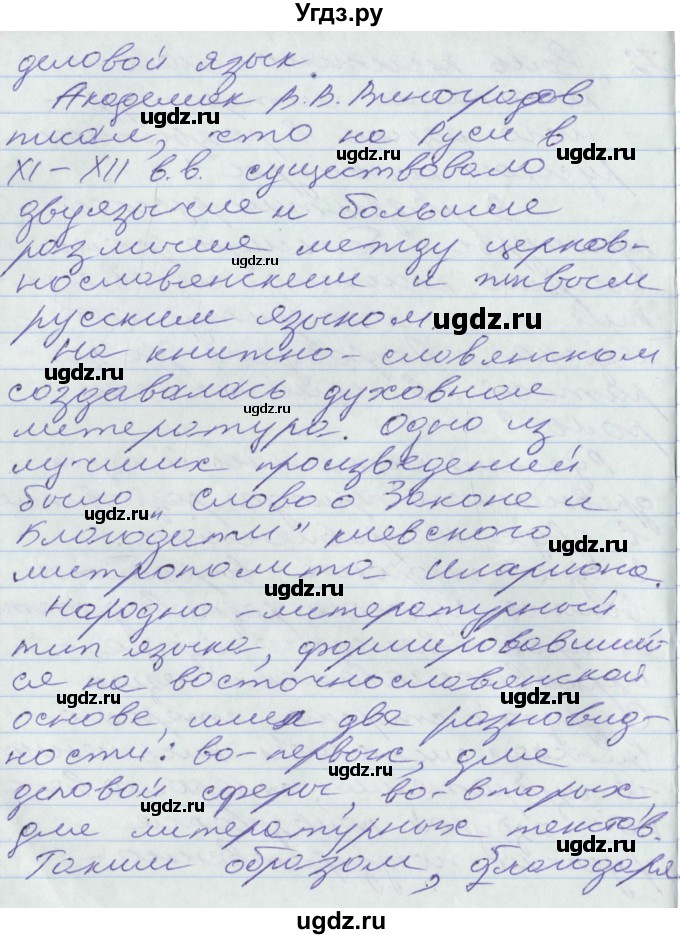 Угдз.ру
деловой язык.
Академик В.В.Виноградов
писал, что на Руси в
XI-XII в.в. существовало
двуязычие и большие
различия между церков-
нославянским и живым
русским языком.
На книжно-славянском
создавалась духовная
литература. Одно из
лучших произведений
было "Слово о Законе и
Благодати" киевского
митрополита Илариона.
Народно-литературный
тип языка, формировавший-
ся на восточнославянской
основе, имел две разновид-
ности: во-первых, для
деловой сферы, во-вторых,
для литературных текстов.
Таким образом, благодаря
ugdz.ru